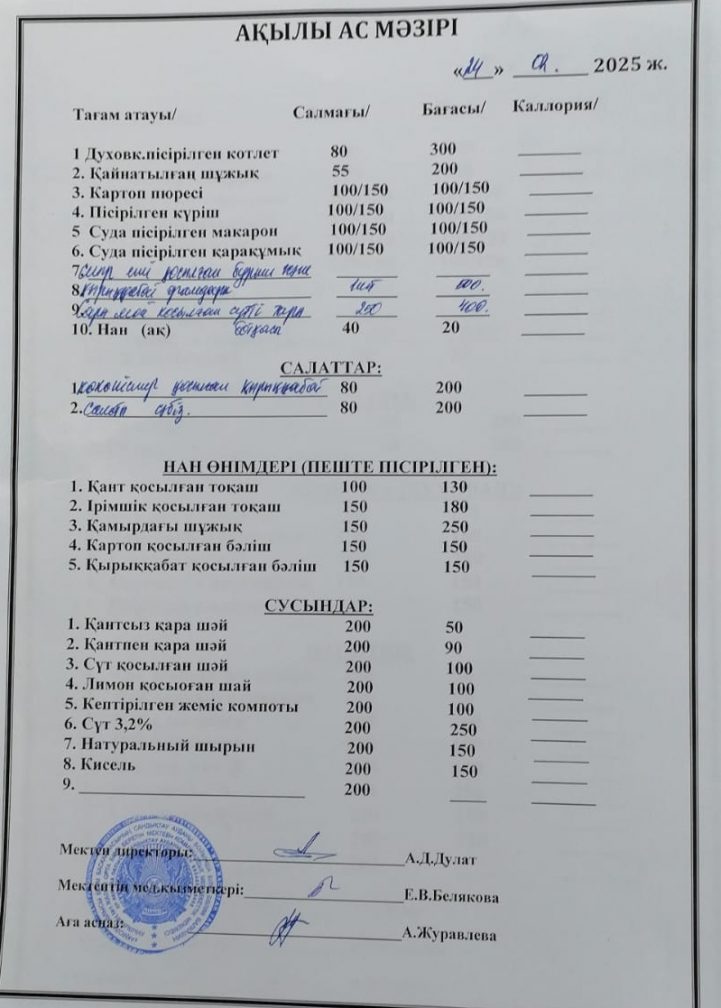 АҚЫЛЫ АС МӘЗІРІ
«24» 02. 2025 ж.
Тағам атауы/ Салмағы/ Бағасы/ Каллория/
1 Духовк.пісірілген котлет 80 300
2. Қайнатылған шұжық 55 200
3. Картоп пюресі 100/150 100/150
4. Пісірілген күріш 100/150 100/150
5 Суда пісірілген макарон 100/150 100/150
6. Суда пісірілген қарақұмық 100/150 100/150
7
8 1шт
9 сары май қосылған сүтті тары 250 400.
10. Нан (ақ) ботқасы 40 20
САЛАТТАР:
1 көкөністер қосылған қырыққабат 80 200
2. Салат сәбіз. 80 200
НАН ӨНІМДЕРІ (ПЕШТЕ ПІСІРІЛГЕН):
1. Қант қосылған тоқаш 100 130
2. Ірімшік қосылған тоқаш 150 180
3. Қамырдағы шұжық 150 250
4. Картоп қосылған бәліш 150 150
5. Қырыққабат қосылған бәліш 150 150
СУСЫНДАР:
1. Қантсыз қара шәй 200 50
2. Қантпен қара шәй 200 90
3. Сүт қосылған шәй 200 100
4. Лимон қосыоған шай 200 100
5. Кептірілген жеміс компоты 200 100
6. Сүт 3,2% 200 250
7. Натуральный шырын 200 150
8. Кисель 200 150
9. 200
Мектеп директоры: А.Д.Дулат
Мектептің мед.кызметкері: Е.В.Белякова
Аға аспаз: А.Журавлева